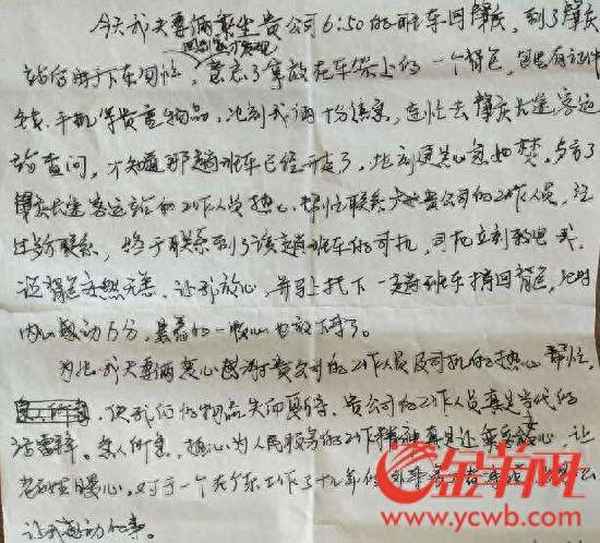 今天我夫妻俩乘坐贵公司6:50的班车回肇庆，到了肇庆
回到家才发现
站后由于下车匆忙，遗忘了存放在车架上的一个背包，包里有证件
钱、手机等贵重物品，此刻我俩十分焦急，连忙去肇庆长途客运
站查问，才知道那趟班车已经开走了，此刻更是心急如焚，
肇庆长途客运站的工作人员热心帮忙联系贵公司的工作人员，经
过多方联系，终于联系到了该趟班车的司机，司机立刻
背包安然无恙，让我放心，并马上托下一趟班车捎回背包，此时
内心感动万分，悬着的一颗心也放下了。
为此我夫妻俩衷心感谢贵公司的工作人员及司机的热心帮忙，
使我们的物品失而复得，贵公司的工作人员真是当代的
活雷锋。急人所急，热心为人民服务的工作精神真是让乘客放心，让
老百姓暖心，对于一个在广东工作了十九年的
让我感动的事。
金羊网
www.ycwb.com